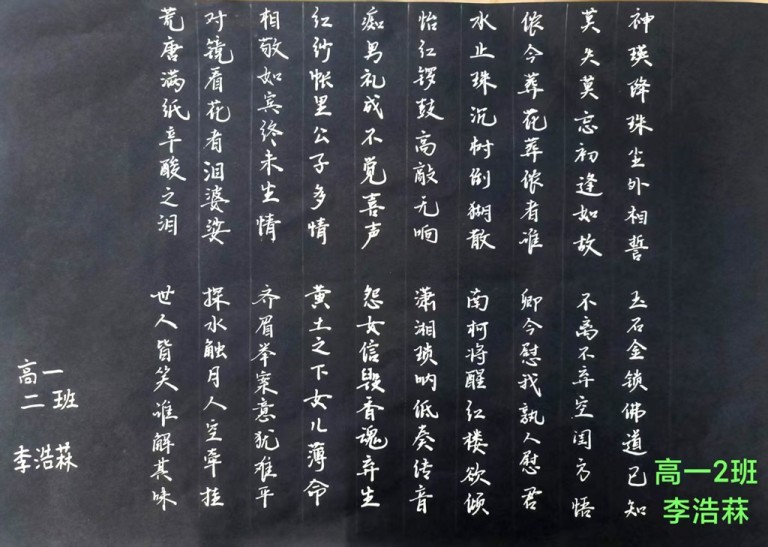 神瑛降珠尘外相誓 玉石金锁佛道已知
莫失莫忘初逢如故 不离不弃空闺方悟
侬今葬花葬侬者谁 卿今慰我孰人慰君
水止珠沉树倒猢散 南柯将醒红楼欲倾
怡红锣鼓高敲无响 潇湘琐呐低奏结音
痴男礼成不觉喜声 怨女信毁香魂弃生
红纱帐里公子多情 黄土之下女儿薄命
相敬如宾终未生情 齐眉举案意犹难平
对镜看花者泪婆娑 探水触月人空牵挂
荒唐满纸辛酸之泪 世人皆笑谁解其味
高一
二班
李浩菻
高一2班
李浩菻